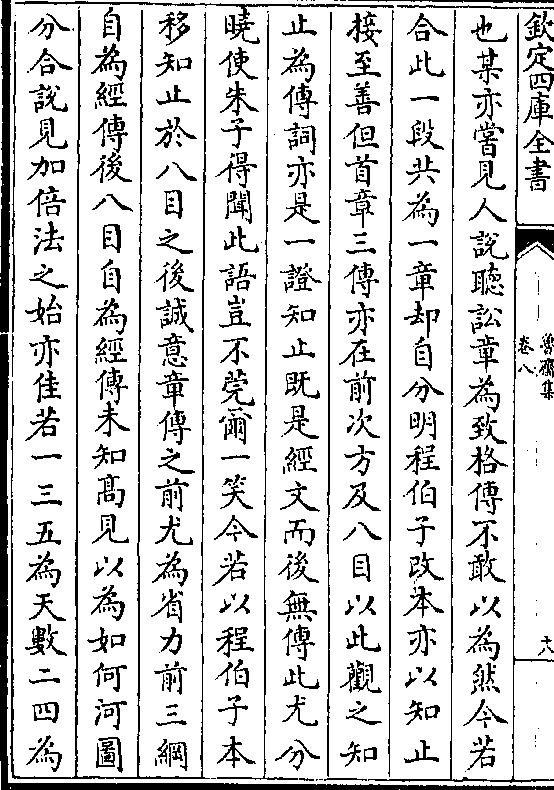 欽定四庫全書
魯齋集
卷八
六
也某亦嘗見人說聽訟章為致格傳不敢以為然今若
合此一段共為一章却自分明程伯子改本亦以知止
接至善但首章三傳亦在前次方及八目以此觀之知
止為傳詞亦是一證知止既是經文而後無傳此尤分
曉使朱子得聞此語豈不莞爾一笑今若以程伯子本
移知止於八目之後誠意章傳之前尤為省力前三綱
自為經傳後八目自為經傳未知髙見以為如何河圖
分合說見加倍法之始亦佳若一三五為天數二四為